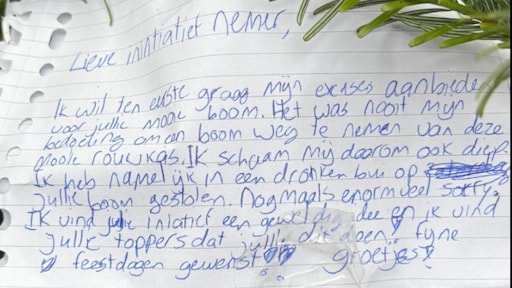 Lieve inintiatief nemer,
Ik wil ten eerste graag mijn excuses aanbieden
voor jullie mooie boom. Het was nooit mijn
bedoeling om een boom weg te nemen van deze
mooie rouwkas. Ik schaam mij daarom ook diep.
Ik heb namelijk in een dronken bui op
jullie boom gestolen. Nogmaals enormveel sorry.
Ik vind jullie iniatief een geweldig idee en ik vind
jullie toppers dat jullie dit doen! fijne
feestdagen gewenst!! groetjes!